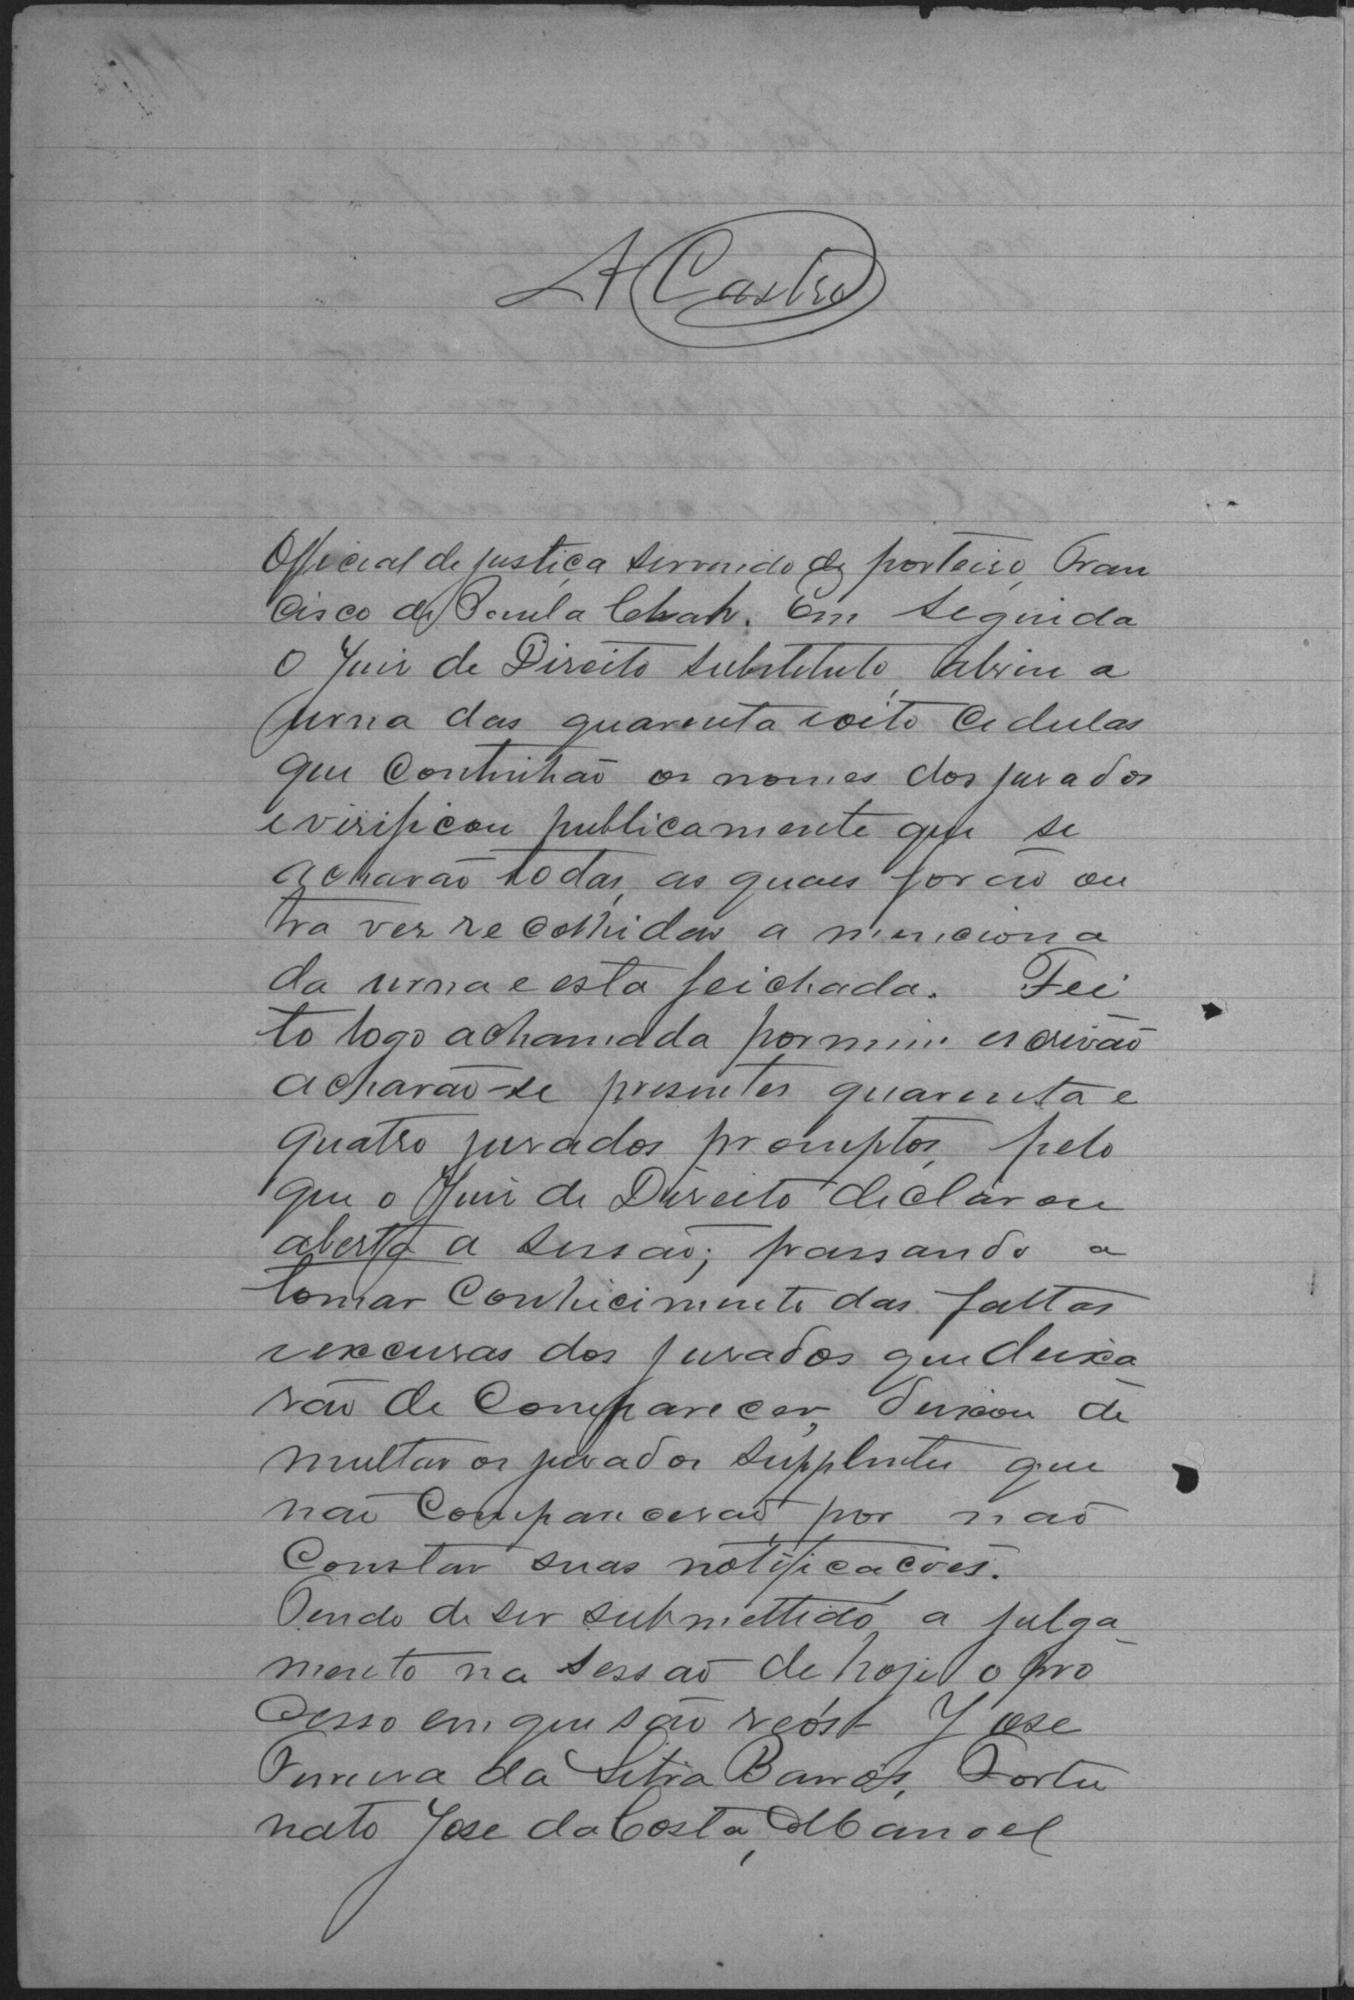 A Castro
Official de justiça servindo de porteiro, Fran
cisco de Paula Chah. Em seguida
o Juis de Direito substituto, abriu a
urna das quarenta e oito cedulas
que continhão os nomes dos jurados
e virificou publicamente que se
acharão todas, as quais forão ou
tra ves recolhidas a menciona
da urna e esta feichada. Fei
to logo a chamada por mim escrivão
acharão-se presentes quarenta e
quatro jurados promptos, pelo
que o Juis de Direito declarou
aberta a sessão; passando a
tomar conhecimento das faltas
e excusas dos jurados que deixa
rão de comparecer, deixou de
multar os jurados supplentes que
não comparecerão, por não
constar suas notificações.
Tendo de ser submettido a julga
mento na sessão de hoje o pro
cesso em que são reós Jose
Ferreira da Barros, Fortu
nato Jose da Costa, Manoel